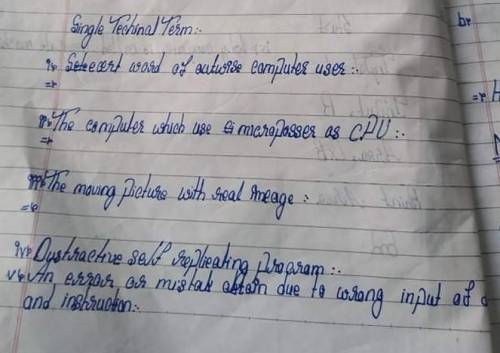 Single Techinal Term:-
i> Secert word of autwise computer user:-
=>
ii> The computer which use micropasser as CPU:-
=>
iii> The moving picture with real imeage:-
=>
iv> Dystractive self replicating program:-
v> An errar or mistak due to wrong input of d
and instruction:-
br
=> H